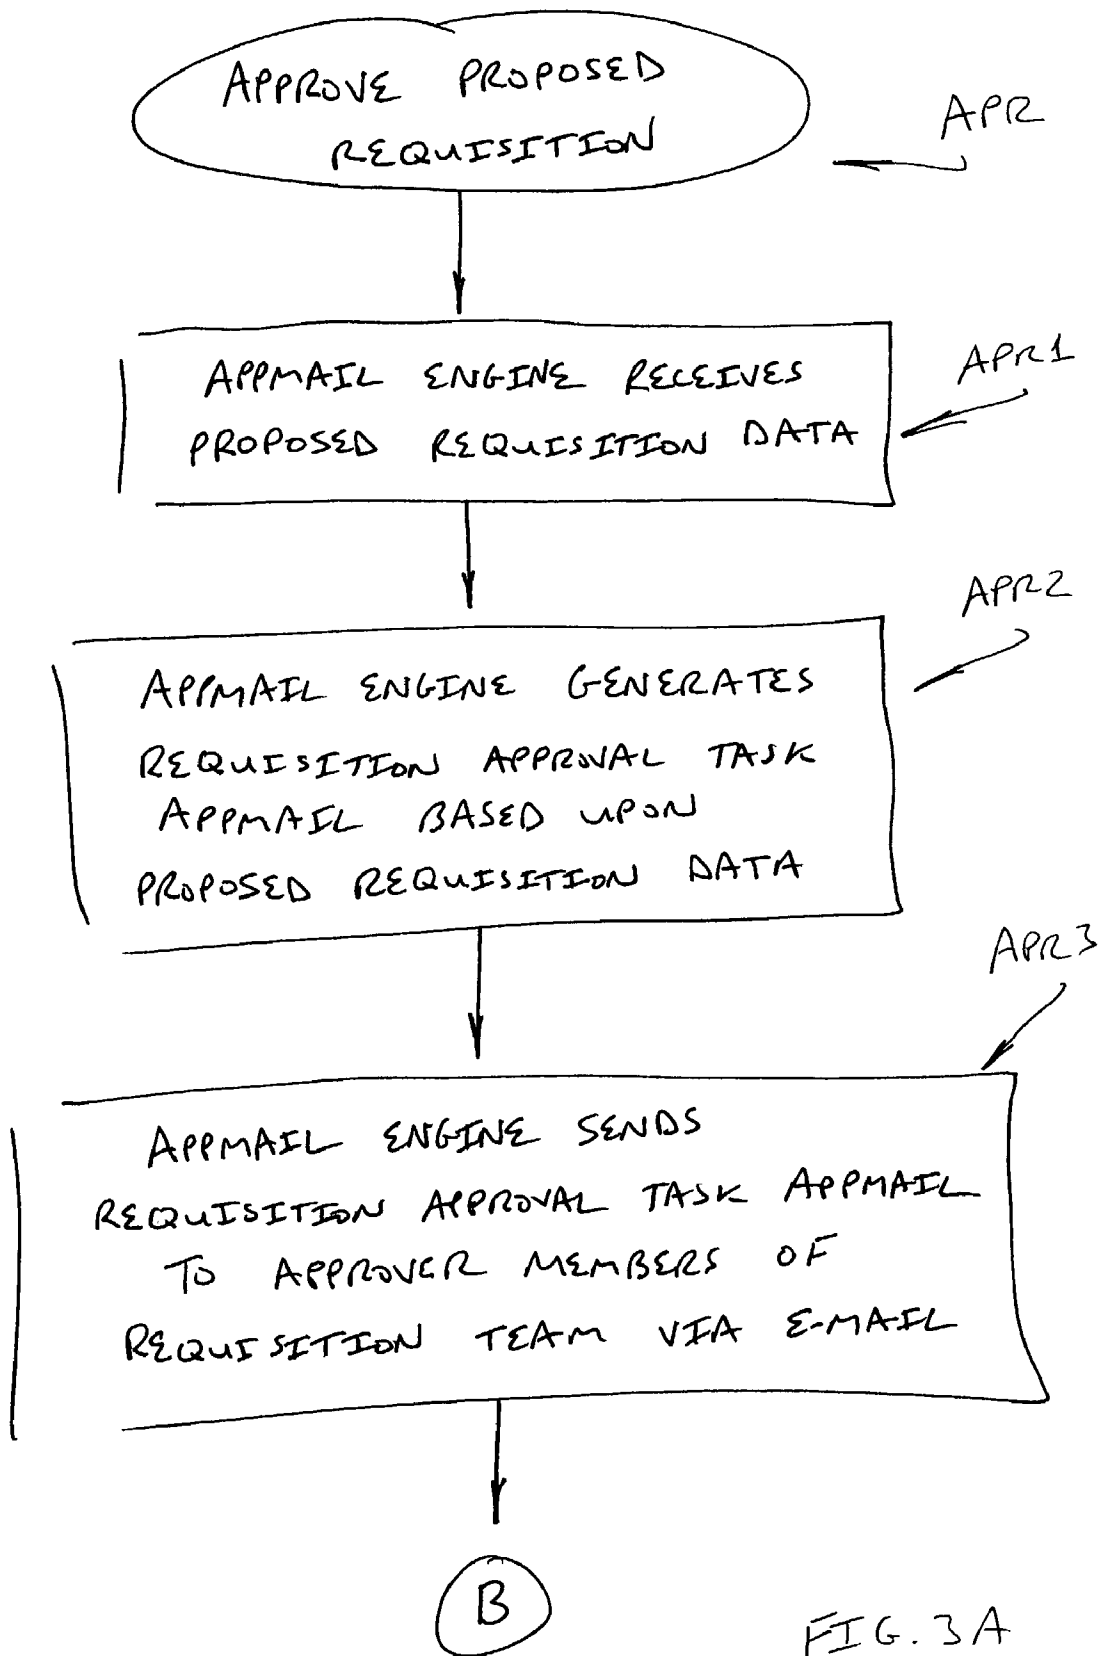 APPROVE PROPOSED
REQUISITION
APR
APPMAIL ENGINE RECEIVES
PROPOSED REQUISITION DATA
APR1
APR2
APPMAIL ENGINE GENERATES
REQUISITION APPROVAL TASK
APPMAIL BASED UPON
PROPOSED REQUISITION DATA
APR3
APPMAIL ENGINE SENDS
REQUISITION APPROVAL TASK APPMAIL
TO APPROVER MEMBERS OF
REQUISITION TEAM VIA E-MAIL
B
FIG. 3A